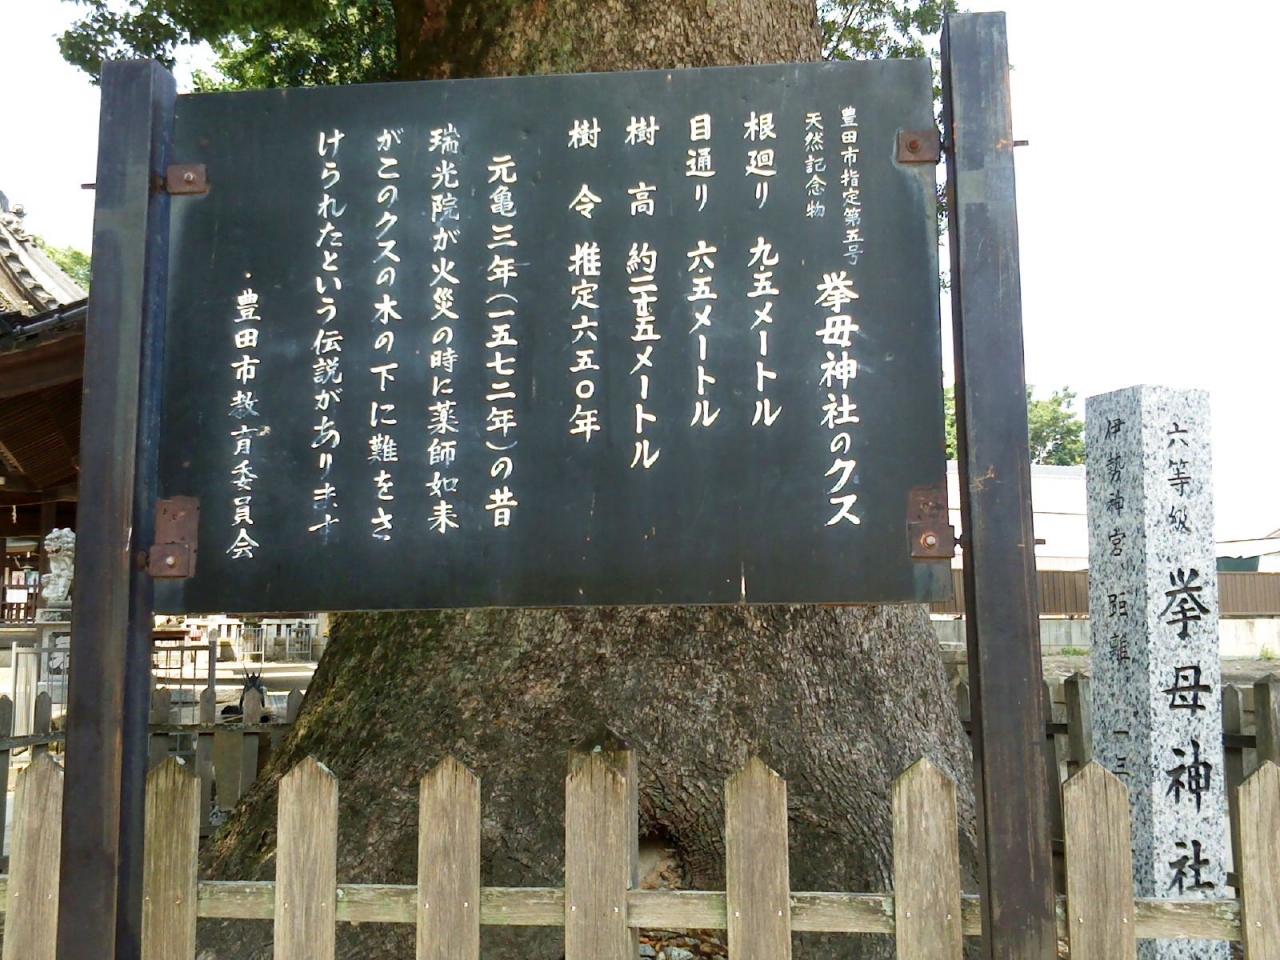 豊田市指定第五号
天然記念物
挙母神社のクス
根廻り 九.五メートル
目通り 六.五メートル
樹 高 約二五メートル
樹 令 推定六五〇年
元亀三年(一五七二年)の昔
瑞光院が火災の時に薬師如来
がこのクスの木の下に難をさ
けられたという伝説があります
豊田市教育委員会
六等級 挙母神社
伊勢神宮距離 一三